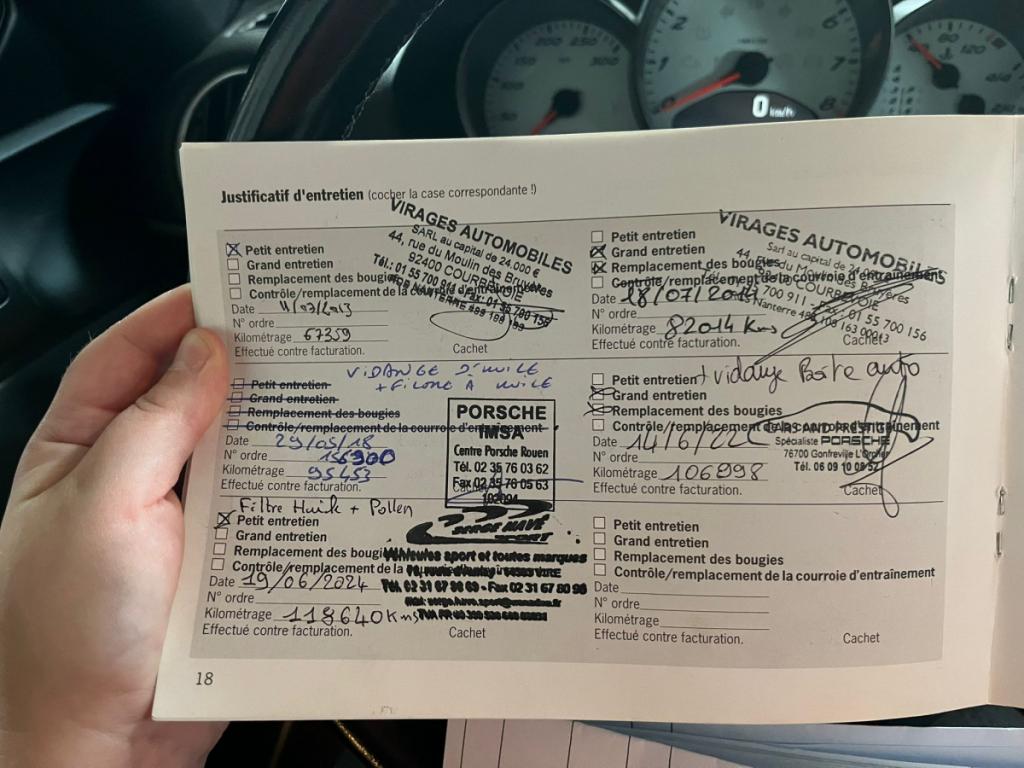 Justificatif d'entretien (cocher la case correspondante !)
Petit entretien
Grand entretien
Remplacement des bougies
Contrôle/remplacement de la courroie d'entraînement
Date 11/03/2013
N° ordre
Kilométrage 67359
Effectué contre facturation.
Cachet
VIRAGES AUTOMOBILES
SARL au capital de 24.000 €
44, rue du Moulin des Bruyères
92400 COURBEVOIE
Tél.: 01 55 700 911 - Fax: 01 55 700 156
RCS NANTERRE
Petit entretien
Grand entretien
Remplacement des bougies
Contrôle/remplacement de la courroie d'entraînement
Date 18/07/2014
N° ordre
Kilométrage 82014 Kms
Effectué contre facturation.
Cachet
VIRAGES AUTOMOBILES
Sarl au capital de 24
44, rue du Moulin des Bruyères
COURBEVOIE
700 911 - Fax: 01 55 700 156
Nanterre
VIDANGE D'HUILE
+ FILTRE A HUILE
Petit entretien
Grand entretien
Remplacement des bougies
Contrôle/remplacement de la courroie d'entraînement
Date 29/05/18
N° ordre
Kilométrage 95453
Effectué contre facturation.
Cachet
PORSCHE
IMSA
Centre Porsche Rouen
Tél. 02 35 76 03 62
Fax 02 35 76 05 63
102094
Petit entretien + vidange Boite auto
Grand entretien
Remplacement des bougies
Contrôle/remplacement de la courroie d'entraînement
Date 14/6/22
N° ordre
Kilométrage 106998
Effectué contre facturation.
Cachet
CARS AND PRESTIGE
Spécialiste PORSCHE
76700 Gonfreville L'Orcher
Tél. 06 09 10 08 52
Filtre Huile + Pollen
Petit entretien
Grand entretien
Remplacement des bougies
Contrôle/remplacement de la
Date 19/06/2024
N° ordre
Kilométrage 118640 Kms
Effectué contre facturation.
Cachet
SERGE HAVÉ
SPORT
Véhicules sport et toutes marques
Tél. 02 31 67 98 69 - Fax 02 31 67 80 98
Petit entretien
Grand entretien
Remplacement des bougies
Contrôle/remplacement de la courroie d'entraînement
Date
N° ordre
Kilométrage
Effectué contre facturation.
Cachet
18
0 km/h